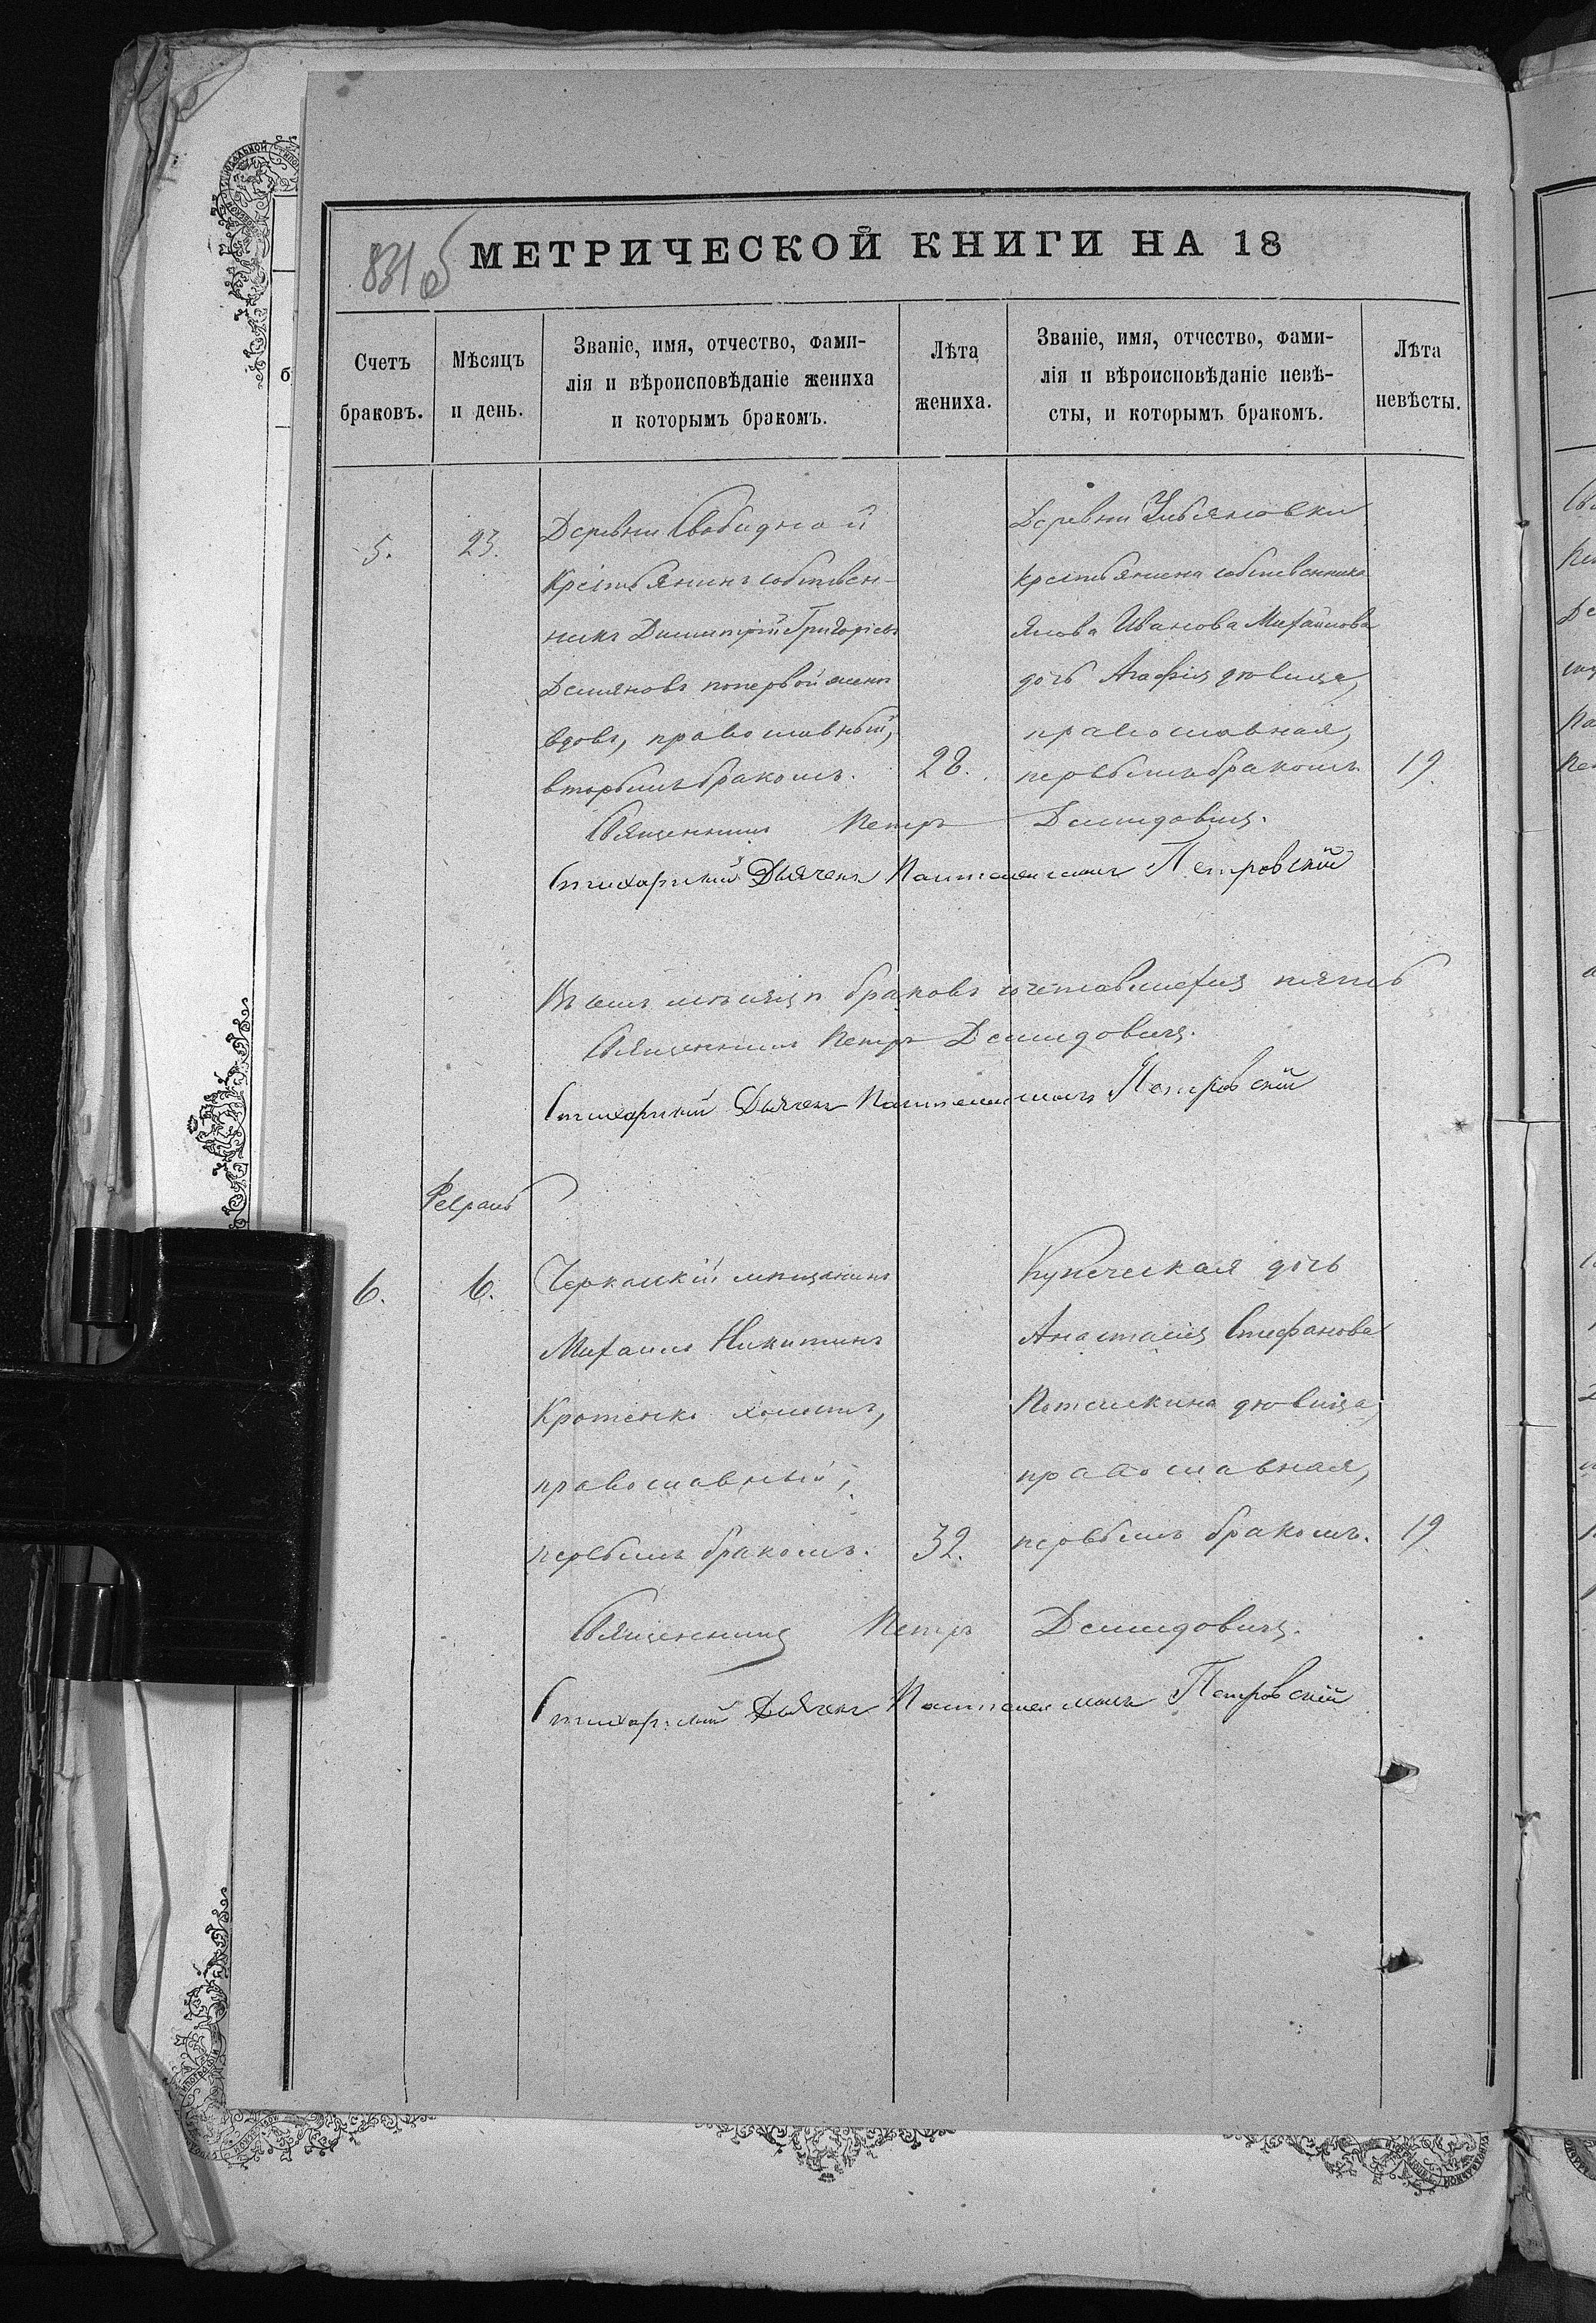 831 об
МЕТРИЧЕСКОЙ КНИГИ НА 18
Счетъ браковъ.
Мѣсяцъ и день.
Званіе, имя, отчество, фами-
лія и вѣроисповѣданіе жениха
и которымъ бракомъ.
Лѣта жениха.
Званіе, имя, отчество, фами-
лія и вѣроисповѣданіе невѣ-
сты, и которымъ бракомъ.
Лѣта невѣсты.
5.
23.
Деревни Свободной
Крестьянинъ собствен-
никъ Димитрій Григоріевъ
Демяновъ по первой женѣ
вдовъ, православный,
вторымъ бракомъ.
28.
Деревни Ульяновки
крестьянина собственника
Якова Иванова Михайлова
дочь Агафія дѣвица,
православная,
первымъ бракомъ.
19.
Священникъ Петръ Демидовичъ.
Стихарный Дьячекъ Пантелеимонъ Петровскій
Въ семъ мѣсяцѣ браковъ сочетавшихся пять
Священникъ Петръ Демидовичъ.
Стихарный Дьячекъ Пантелеимонъ Петровскій
Февраль
6.
6.
Черкаскій мѣщанинъ
Михаилъ Никитинъ
Кротенко холостъ,
православный,
первымъ бракомъ.
32.
Купеческая дочь
Анастасія Стефанова
Потемкина дѣвица,
православная,
первымъ бракомъ.
19
Священникъ Петръ Демидовичъ.
Стихарный Дьячекъ Пантелеимонъ Петровскій